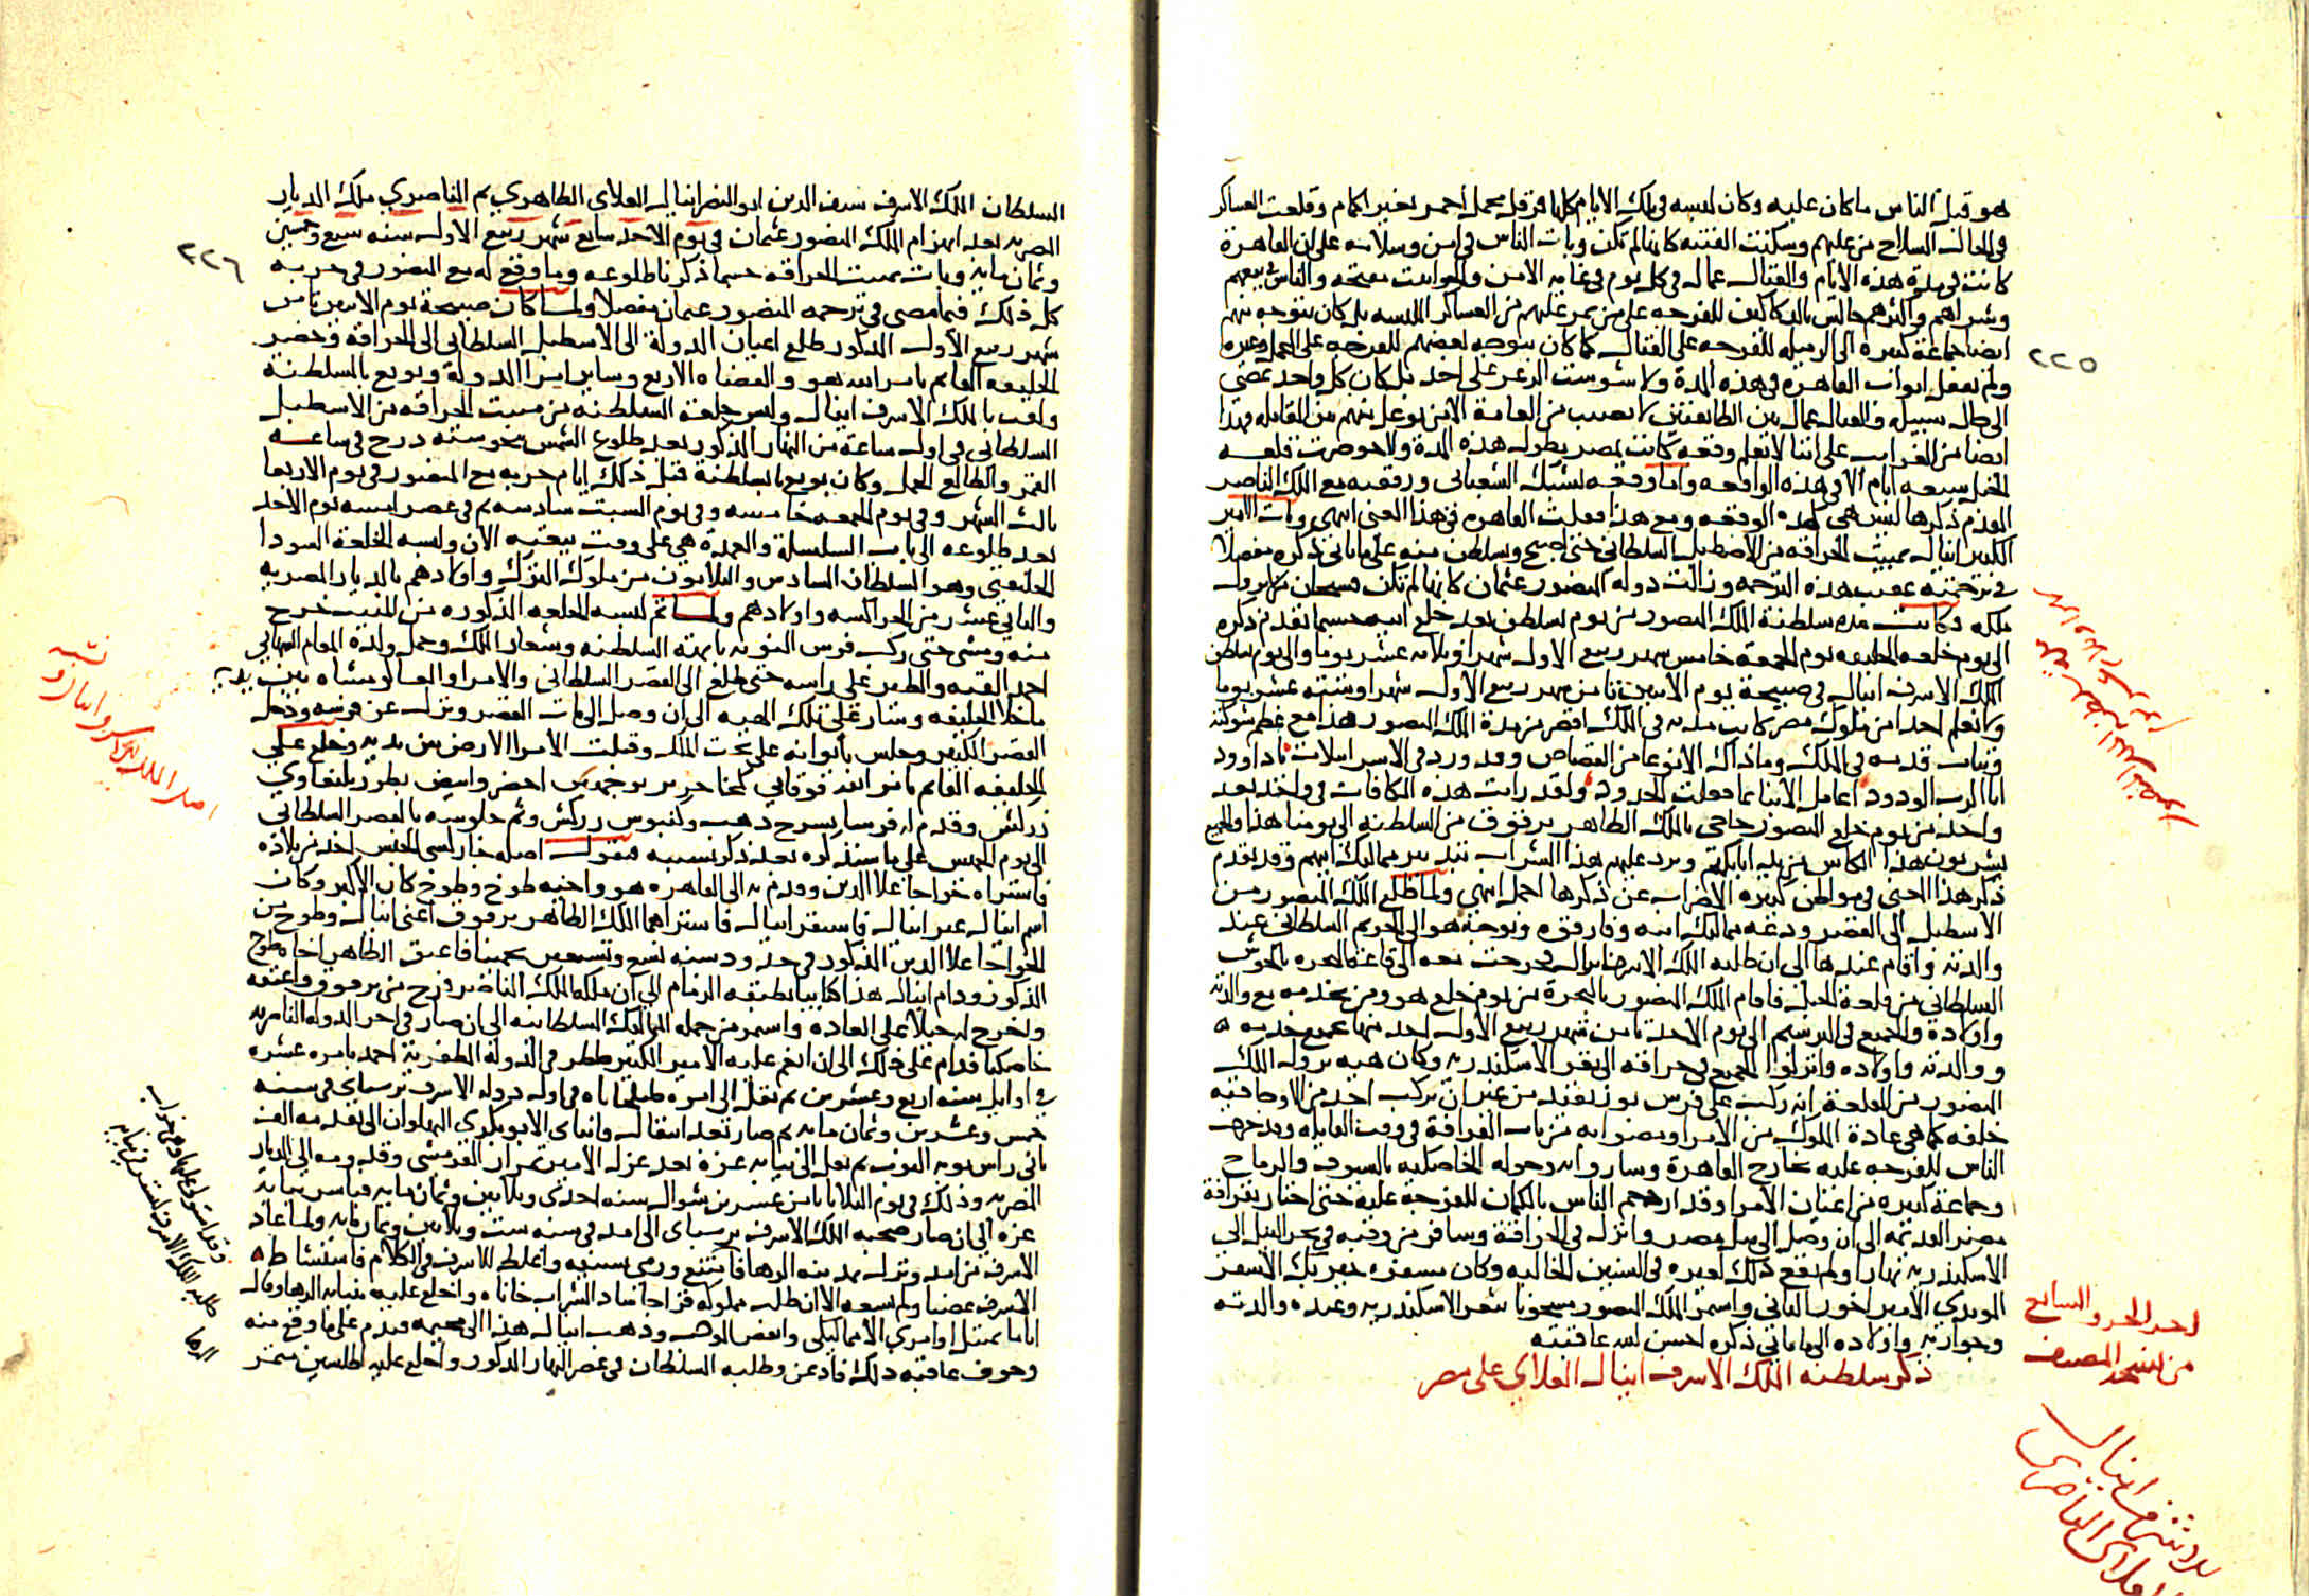 هو قبل الناس ما كان عليه وكان لبسه في تلك الايام كلها قرقل مخمل أحمر بغير اكمام وقلعت العساكر
في الحال السلاح من عليهم وسكنت الفتنة كانها لم تكن وبات الناس في امن وسلامه على ان القاهرة
كانت في مدة هذه الايام والقتال عمال في كل يوم في غاية الامن والحوانيت مفتحه والناس في بيعهم
وشراهم واكثرهم جالس بالدكاكين للفرجه على من يمر عليهم من العساكر الملبسه بل كان يتوجه منهم
ايضا جماعة كبيرة الى الرميله للفرجه على القتال كما كان يتوجه بعضهم للفرجه على المحمل وغيره
ولم تقفل ابواب القاهره في هذه المدة ولا شوشت الزعر على احد بل كان كل واحد يمضي
الى حال سبيله والقتال عمال بين الطائفتين لا يصيب من العامة الا من توغل منهم من المقاتله وهذا
ايضا من الغرايب على اننا لا نعلم وقعه كانت بمصر بطول هذه المدة ولا حوصرت قلعة
الجبل سبعه ايام الا في هذه الواقعه واما وقعه يشبك الشعباني ورفقته مع الملك الناصر
المقدم ذكرها ليس هي كهذه الوقعه ومع هذا فعلت القاهره في هذا المعنى انتهى وبات الامير
الكبير اينال بمبيت الحراقه من الاصطبل السلطاني حتى اصبح وتسلطن منه على ما ياتي ذكره مفصلا
في ترجمته عقيب هذه الترجمه وزالت دولة المنصور عثمان كانها لم تكن فسبحان من لا يزول
ملكه وكانت مده سلطنة الملك المنصور من يوم تسلطن بعد خلع ابيه حسبما تقدم ذكره
الى يوم خلعه الخليفه يوم الجمعة خامس شهر ربيع الاول شهرا وثلاثه عشر يوما والى يوم تسلطن
الملك الاشرف اينال في صبيحة يوم الاثنين ثامن شهر ربيع الاول شهرا وستة عشر يوما
ولا نعلم احدا من ملوك مصر كانت مدته في الملك اقصر من مدة الملك المنصور هذا مع عظم شوكته
وثبات قدمه في الملك وما ذاك الا نوعا من القصاص وقد ورد في الاسراييليات يا داوود
انا الرب الودود اعامل الابنا بما فعلت الجدود ولقد رايت هذه المكافات في واحد بعد
واحد من يوم خلع المنصور حاجي بالملك الظاهر برقوق من السلطنه الى يومنا هذا والجميع
يشربون هذا الكاس من يد اتابكتهم ويرد عليهم هذا الشراب بتدبير مماليك ابيهم وقد تقدم
ذكر هذا المعنى في مواطن كثيره الاضراب عن ذكرها اجمل انتهى ولما طلع الملك المنصور من
الاسطبل الى القصر ودعه مماليك ابيه وفارقوه وتوجه هو الى الحريم السلطاني عند
والدته واقام عندها الى ان طلبه الملك الاشرف اينال فخرجت معه الى قاعة البحره بالحوش
السلطاني من قلعة الجبل فاقام الملك المنصور بالبحرة من يوم خلع هو ومن يخدمه مع والدته
واولاده والجميع في الترسيم الى يوم الاحد ثامن شهر ربيع الاول اخذ منها جميع خدمه
ووالدته واولاده وانزلوا الجميع في حراقه الى ثغر الاسكندريه وكان هيئه نزول الملك
المنصور من القلعة انه ركب على فرس بوز بقيد من غير ان يركب احد من الاوجاقيه
خلفه كما هي عادة الملوك من الامرا ومضوا به من باب القرافة في وقت القايله وقد خرجت
الناس للفرجه عليه بخارج القاهرة وساروا به وحوله الخاصكيه بالسيوف والرماح
وجماعة كبيره من اعيان الامرا وقد ازدحم الناس بالكيمان للفرجة عليه حتى اجتاز بقرافة
مصر القديمه الى ان وصل الى نيل مصر وانزل في الحراقة وسافر من وقته في بحر النيل الى
الاسكندريه نهارا ولم يقع ذلك لغيره في السنين الخاليه وكان مسفره خيربك الاشقر
المويدي الامير اخور الثاني واستمر الملك المنصور مسجونا بثغر الاسكندريه وعنده والدته
وجواريه واولاده الى ما ياتي ذكره احسن الله عاقبته
ذكر سلطنه الملك الاشرف اينال العلاي على مصر
٢٢٥
اخر الجزو السابع
من نسخة المصنف
السلطان الملك الاشرف سيف الدين ابو النصر اينال العلاي الظاهري ثم الناصري ملك الديار
المصريه بعد انهزام الملك المنصور عثمان في يوم الاحد سابع شهر ربيع الاول سنه سبع وخمسين
وثمان مايه وبات بمبيت الحراقه حسبما ذكرنا طلوعه وما وقع له مع المنصور في حربه
كل ذلك فيما مضى في ترجمه المنصور عثمان مفصلا ولما كان صبيحة يوم الاثنين ثامن
شهر ربيع الأول المذكور طلع اعيان الدولة الى الاسطبل السلطاني الى الحراقة وحضر
الخليفه القايم بامر الله هو والقضاه الاربع وساير امرا الدولة وبويع بالسلطنة
ولقب بالملك الاشرف اينال ولبس خلعة السلطنه من مبيت الحراقه من الاسطبل
السلطاني في اول ساعة من النهار المذكور بعد طلوع الشمس بنحو سته درج في ساعة
القمر والطالع الحمل وكان بويع بالسلطنة قبل ذلك ايام حربه مع المنصور في يوم الاربعا
ثالث الشهر وفي يوم الجمعه خامسه وفي يوم السبت سادسه ثم في عصر امسه يوم الاحد
بعد طلوعه الى باب السلسلة والعمدة هي على وقت بيعته الان ولبسه الخلعة السودا
الخليفتي وهو السلطان السادس والثلاثون من ملوك الترك واولادهم بالديار المصريه
والثاني عشر من الجراكسه واولادهم ولما تم لبسه الخلعه المذكوره من المبيت خرج
منه ومشى حتى ركب فرس النوبه بابهة السلطنه وشعار الملك وحمل ولده المقام الشهابي
احمد القبه والطير على راسه حتى طلع الى القصر السلطاني والامرا والعساكر مشاه بين يديه
ما خلا الخليفه وسار على تلك الهيه الى ان وصل الى باب القصر ونزل عن فرسه ودخل
القصر الكبير وجلس بايوانه على تخت الملك وقبلت الأمرا الارض بين يديه وخلع على
الخليفه القايم بامر الله فوقاني كمخا حرير بوجهين اخضر وابيض بطرز يلبغاوي
زركش وقدم له فرسا بسرج ذهب وكنبوش زركش وتم جلوسه بالقصر السلطاني
الى يوم الخميس على ما سنذكره بعد ذكر نسبه فنقول اصله جاركسي الجنس اخذ من بلاده
فاشتراه خواجا علا الدين وقدم به الى القاهره هو واخيه طوخ وطوخ كان الاكبر وكان
اسم اينال غير اينال فاستقر اينال فاشتراهما الملك الظاهر برقوق اعني اينال وطوخ من
الخواجا علا الدين المذكور في حدود سنه تسع وتسعين تخمينا فاعتق الظاهر اخاه طوخ
المذكور ودام اينال هذا كتابيا بطبقه الزمام الى ان ملكه الملك الناصر فرج بن برقوق واعتقه
واخرج له خيلا على العاده واستمر من جمله المماليك السلطانيه الى ان صار في اخر الدوله الناصريه
خاصكيا فدام على ذلك الى ان انعم عليه الامير الكبير ططر في الدولة المظفريه احمد بامره عشره
في اوايل سنه اربع وعشرين ثم نقل الى امره طبلخاناه في اول دوله الاشرف برسباي في سنه
خمس وعشرين وثمان مايه ثم صار بعد انتقال قانباي الابوبكري البهلوان الى تقدمه الف
ثاني راس نوبه النوب ثم نقل الى نيابه غزة بعد عزل الامير تمراز القرمشي وقدومه الى الديار
المصريه وذلك في يوم الثلاثا ثامن عشرين شوال سنه احدى وثلاثين وثمان مايه فباشر نيابه
غزه الى ان صار صحبه الملك الاشرف برسباى الى امد في سنه ست وثلاثين وثمان مايه ولما عاد
الاشرف من امد ونزل بمدينه الرها فامتنع ورمى بسيفه واغلظ للاشرف في الكلام فاستشاط
الاشرف غضبا ولم يسعه الا ان طلب مملوكه قراجا شاد الشراب خاناه واخلع عليه بنيابه الرها وقال
انا ما يمتثل اوامري الا مماليكي وانفض الموكب وذهب اينال هذا الى مخيمه فندم على ما وقع منه
وخوف عاقبه ذلك فاذعن وطلبه السلطان في عصر النهار المذكور واخلع عليه اطلسين متمر
٢٢٦